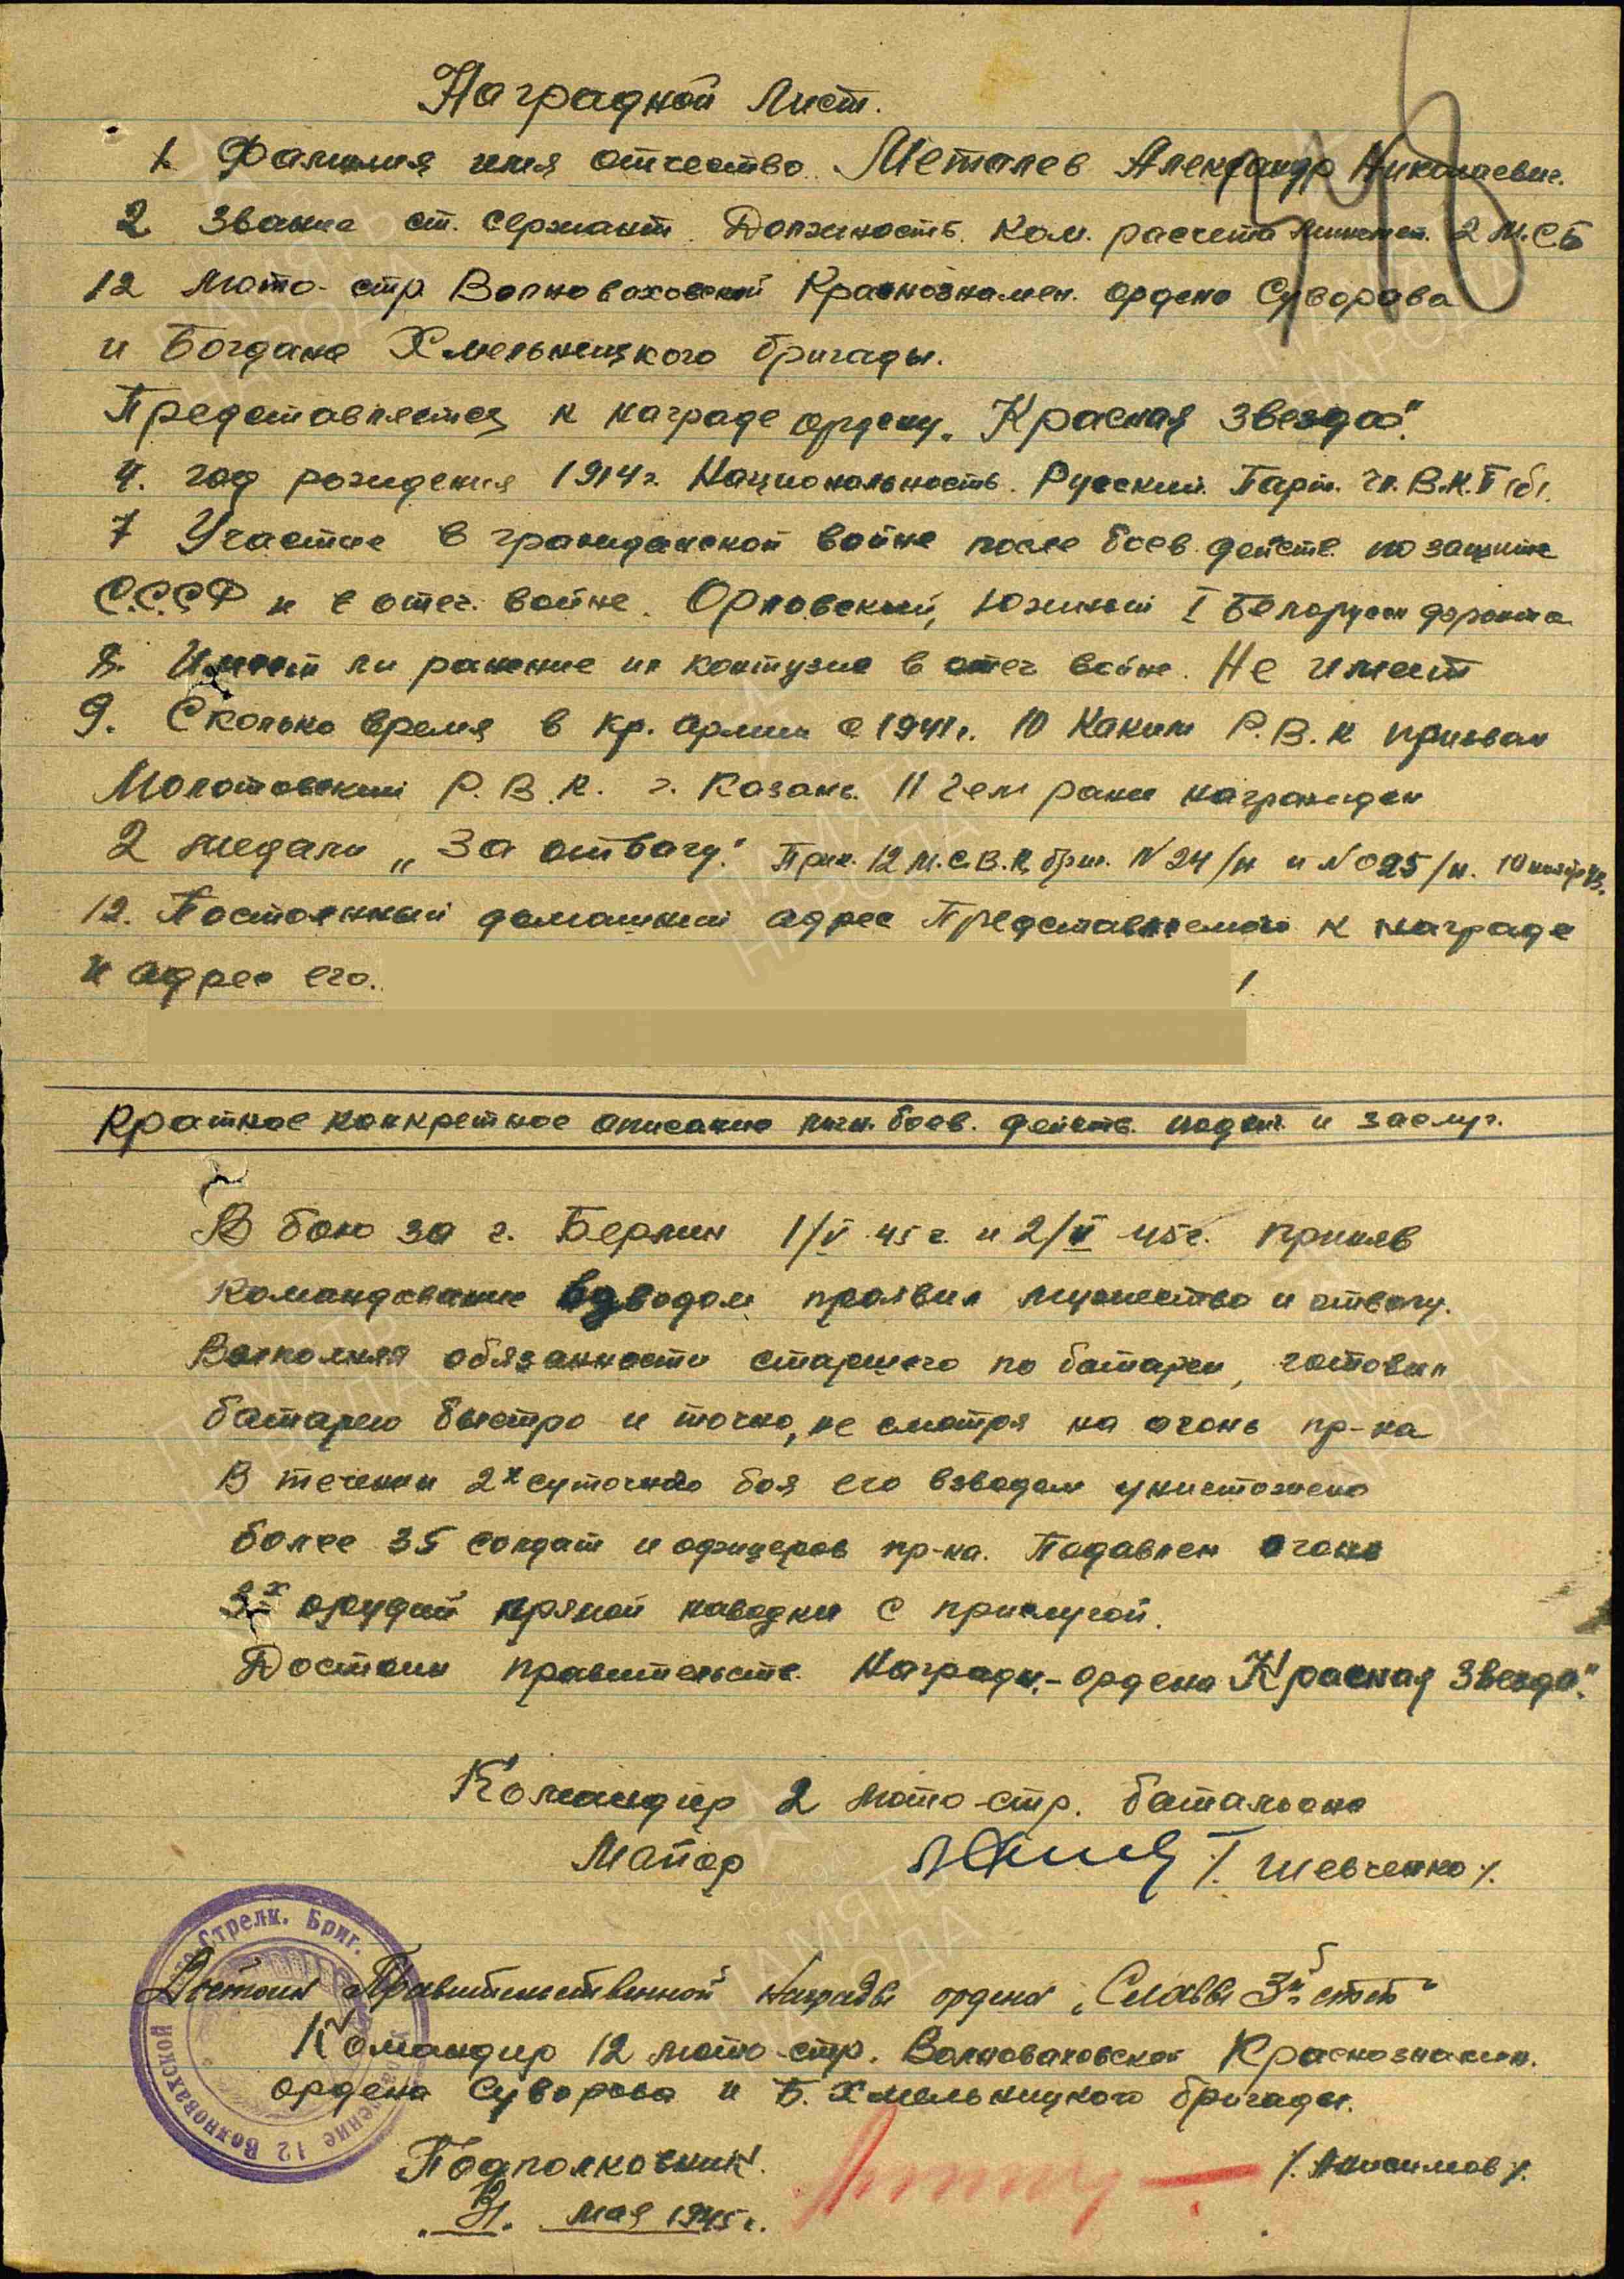 Наградной лист.
1. Фамилия имя отчество. Металев Александр Николаевич.
2 Звание ст. сержант. Должность. Ком. расчета миномет. 2 М.С.Б
12 мото-стр. Волновоховской Краснознамен. ордена Суворова
и Богдана Хмельницкого бригады.
Представляется к награде ордену „Красная Звезда".
4. год рождения 1914 г. Национальность. Русский. Парт. чл. В.К.П(б).
7 Участие в гражданской войне после боев. действ. по защите
С.С.С.Р и в отеч. войне. Орловский, Южный I Белорусск фронта
8. Имеет ли ранение и контузие в отеч войне. Не имеит
9. Сколько время в кр. армии с 1941 г. 10 Каким Р.В.К призван
Молотовский Р.В.К. г. Казань. 11 Чем ранее награжден
2 медали „За отвагу". Прик. 12 М.С.В.К. бриг. N 24/н и N 025/н. 10
12. Постоянный домашний адрес Представляемого к награде
и адрес его.
Краткое конкретное описание личн. боев. действ. подвиг. и заслуг.
В бою за г. Берлин 1/V 45 г. и 2/V 45 г. приняв
командование взводом проявил мужество и отвагу.
Выполняя обязанности старшего по батареи, готовил
батарею быстро и точно, не смотря на огонь пр-ка
В течении 2х суточного боя его взводом уничтожено
более 35 солдат и офицеров пр-ка. Подавлен огонь
3х орудий прямой наводки с прислугой.
Достоин правительств. Награды.- ордена „Красная Звезда".
Командир 2 мото-стр. батальона
Майор /. Шевченко /.
Достоин Правительственной награды ордена „Славы 3й степ"
Командир 12 мото-стр. Волноваховской Краснознамен.
ордена Суворова и Б. Хмельницкого бригады.
Подполковник. /. Анисимов /.
мая 1945 г.
Стрелк. Бриг. 12 Волновахской
ПАМЯТЬ НАРОДА